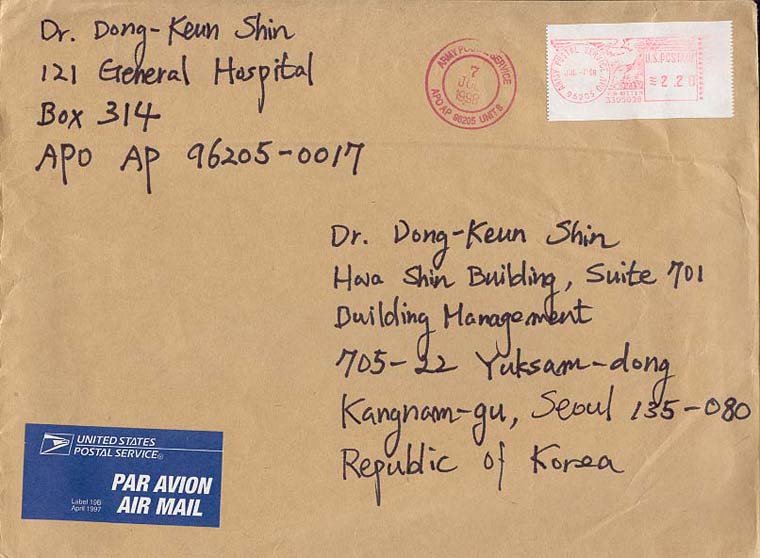 Dr. Dong-Keun Shin
121 General Hospital
Box 314
APO AP 96205-0017
ARMY POSTAL SERVICE
7
JUL
1998
APO AP 96205 UNIT 8
ARMY POSTAL SERVICE
96205
U.S. POSTAGE
2.20
3305039
Dr. Dong-Keun Shin
Hwa Shin Building, Suite 701
Building Management
705-22 Yuksam-dong
Kangnam-gu, Seoul 135-080
Republic of Korea
UNITED STATES
POSTAL SERVICE®
PAR AVION
AIR MAIL
Label 19B
April 1997